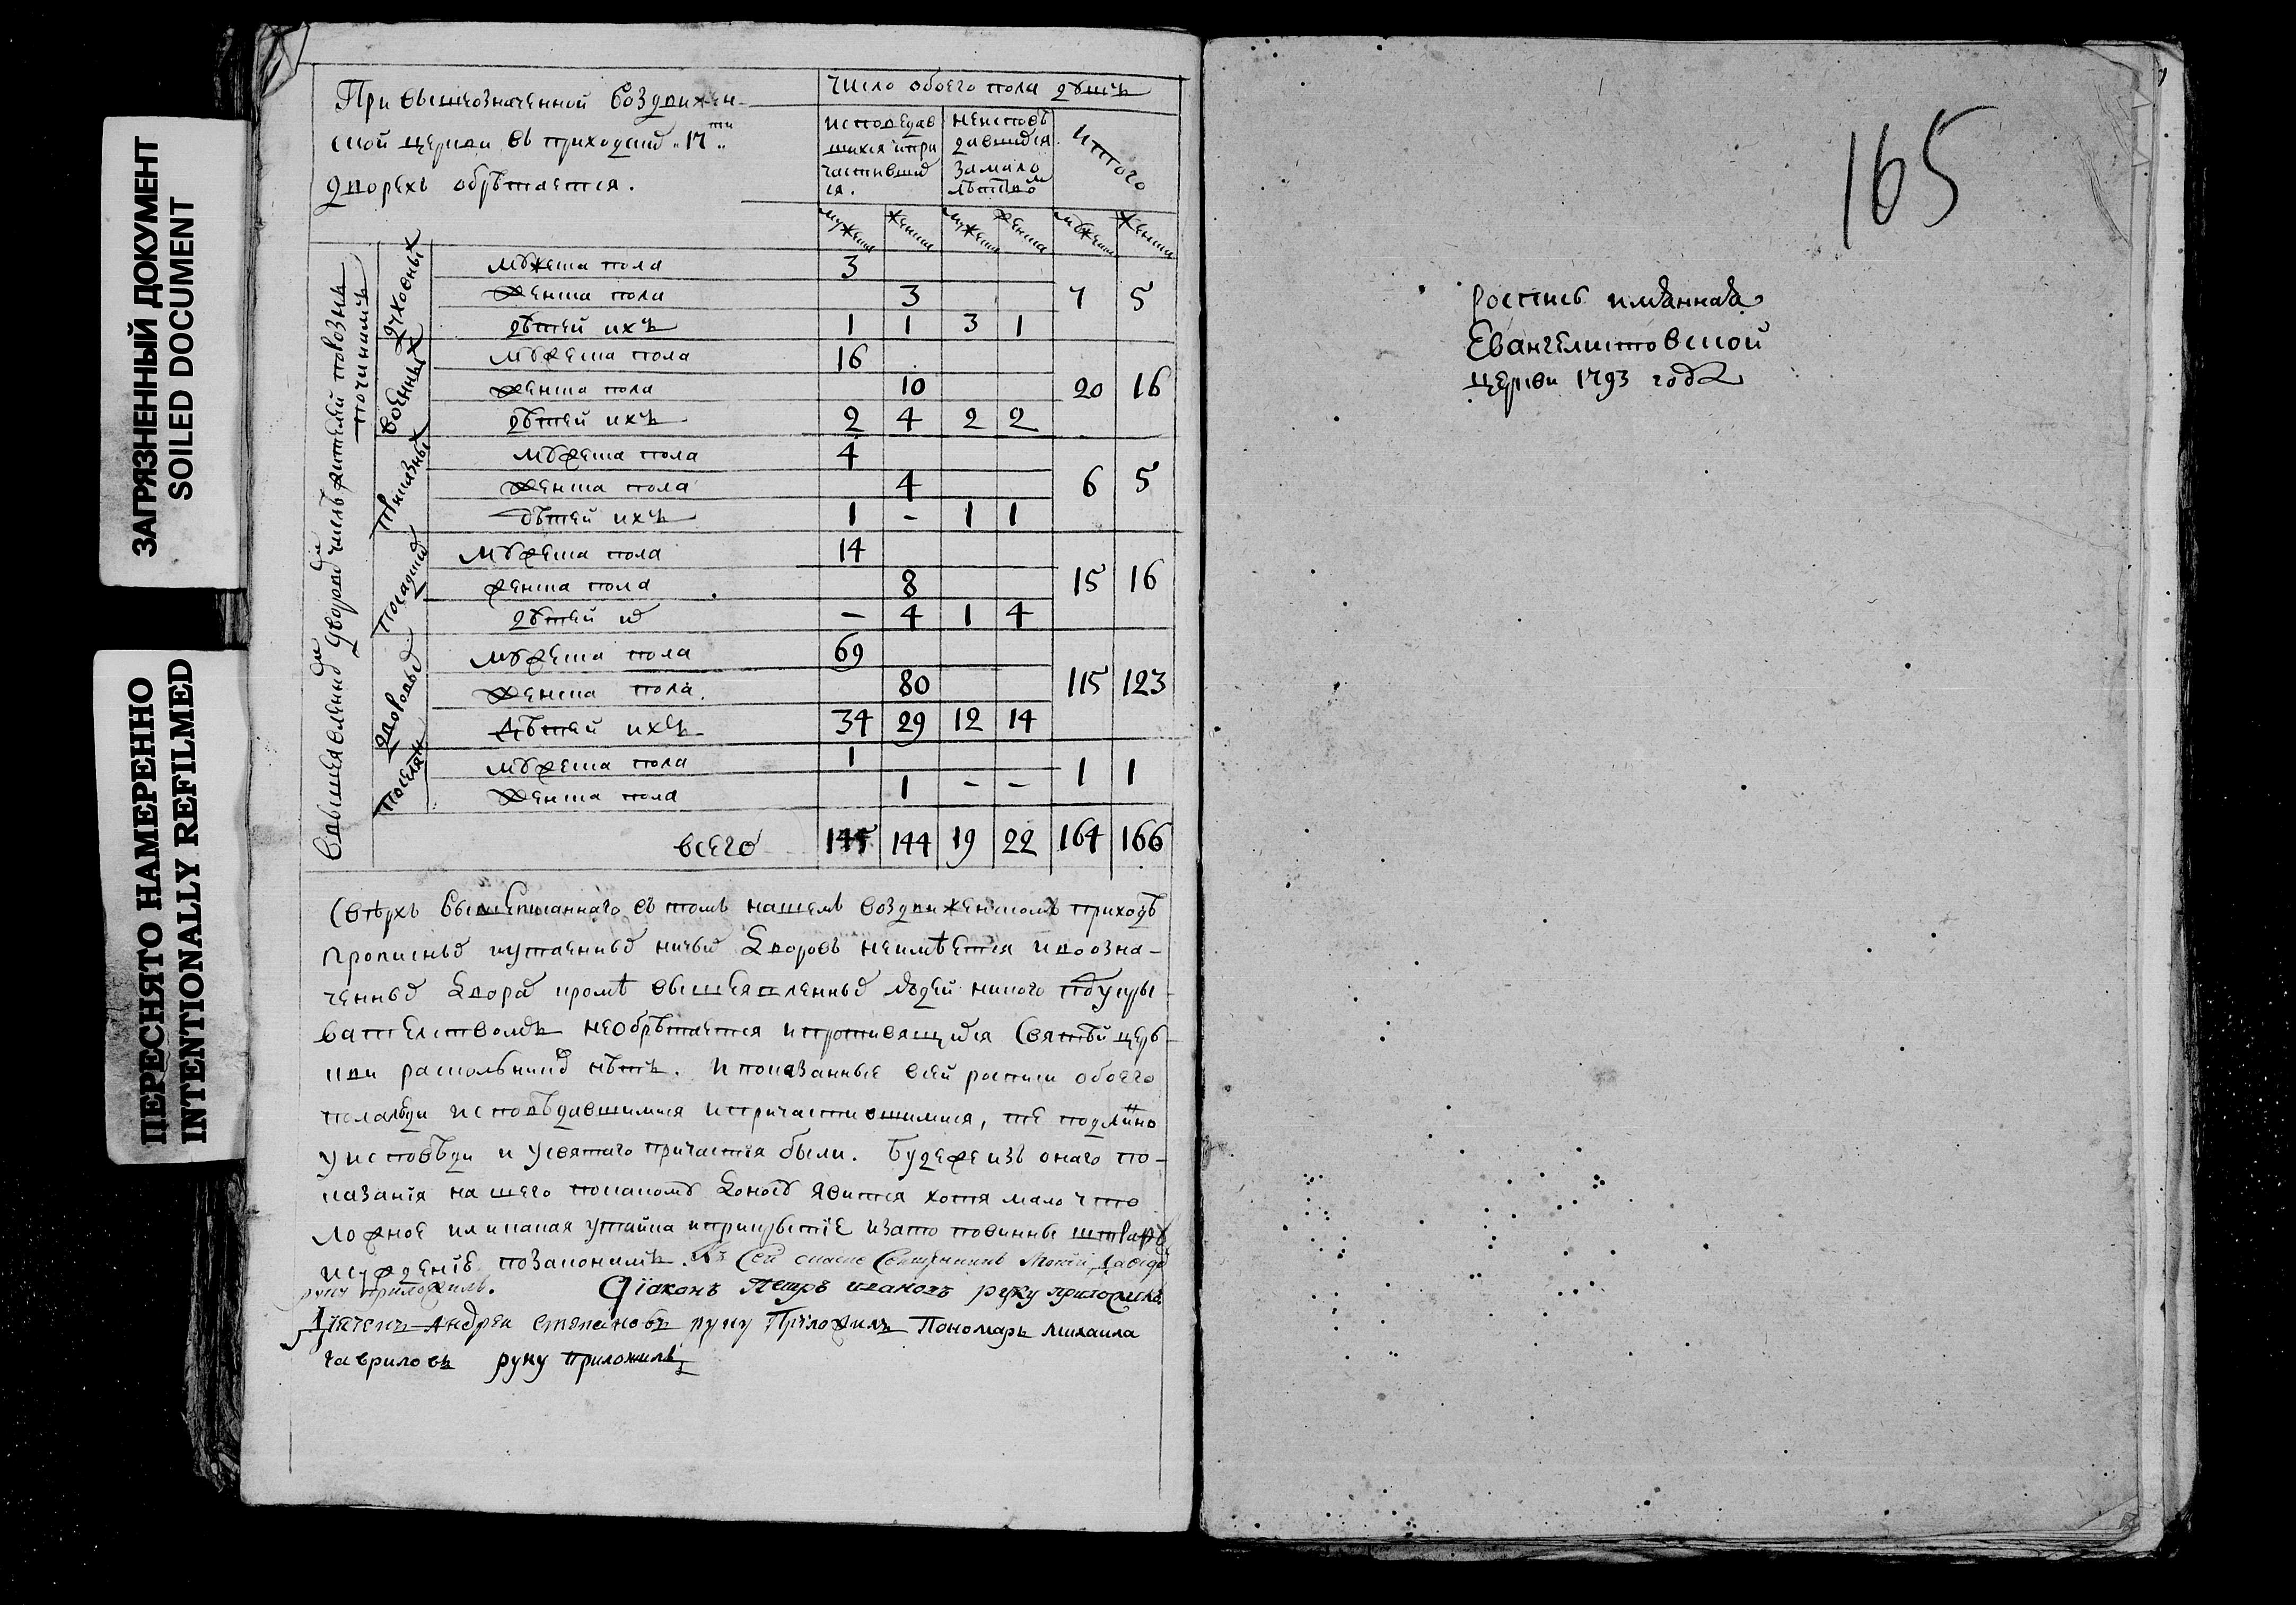 ЗАГРЯЗНЕННЫЙ ДОКУМЕНТ
SOILED DOCUMENT
ПЕРЕСНЯТО НАМЕРЕННО
INTENTIONALLY REFILMED
При вышеозначенной Воздвижен-
ской церкви въ приходскихъ „17ти„
дворехъ обрѣтается.
число обоего пола душъ
исповедав
шихся и при
частивших
ся.
неисповѣ
давшихся
за мало
лѣтством
Итого
мужеска женска мужеска женска мужеска женска
духовныхъ
мужеска пола 3
женска пола 3 7 5
дѣтей ихъ 1 1 3 1
военныхъ
мужеска пола 16
женска пола 10 20 16
дѣтей ихъ 2 4 2 2
приказныхъ
мужеска пола 4
женска пола 4 6 5
дѣтей ихъ 1 - 1 1
посадскихъ
мужеска пола 14
женска пола 8 15 16
дѣтей их - 4 1 4
дворовыхъ
мужеска пола 69
женска пола 80 115 123
дѣтей ихъ 34 29 12 14
поселян
мужеска пола 1
женска пола 1 - - 1 1
всего 145 144 19 22 164 166
Сверхъ вышеписаннаго въ томъ нашемъ воздвиженскомъ приходѣ
прописныхъ и утаенныхъ ничьихъ дворовъ неимѣется и во озна-
ченныхъ дворах кромѣ вышеявленныхъ людей никого под укры-
вательствомъ необрѣтается и противящихся Святѣй церк-
кви раскольников нѣтъ. И показанные в сей росписи обоего
пола люди исповѣдавшимися и причастившимися, те подлинно
у исповѣди и у святаго причастия были. Буде же изъ онаго по-
казанїя нашего по какомъ доносѣ явится хотя мало что
ложное или какая утайка и прикрытїе и за то повинны
по законамъ. Къ сей сказке Священникъ
руку приложилъ. Дїаконъ Петръ Ивановъ руку приложилъ
Дїячекъ Андрей Степановъ руку Приложилъ Пономарь Михаила
Гавриловъ руку приложилъ
165
Роспись имянная
Евангелистовской
церкви 1793 года